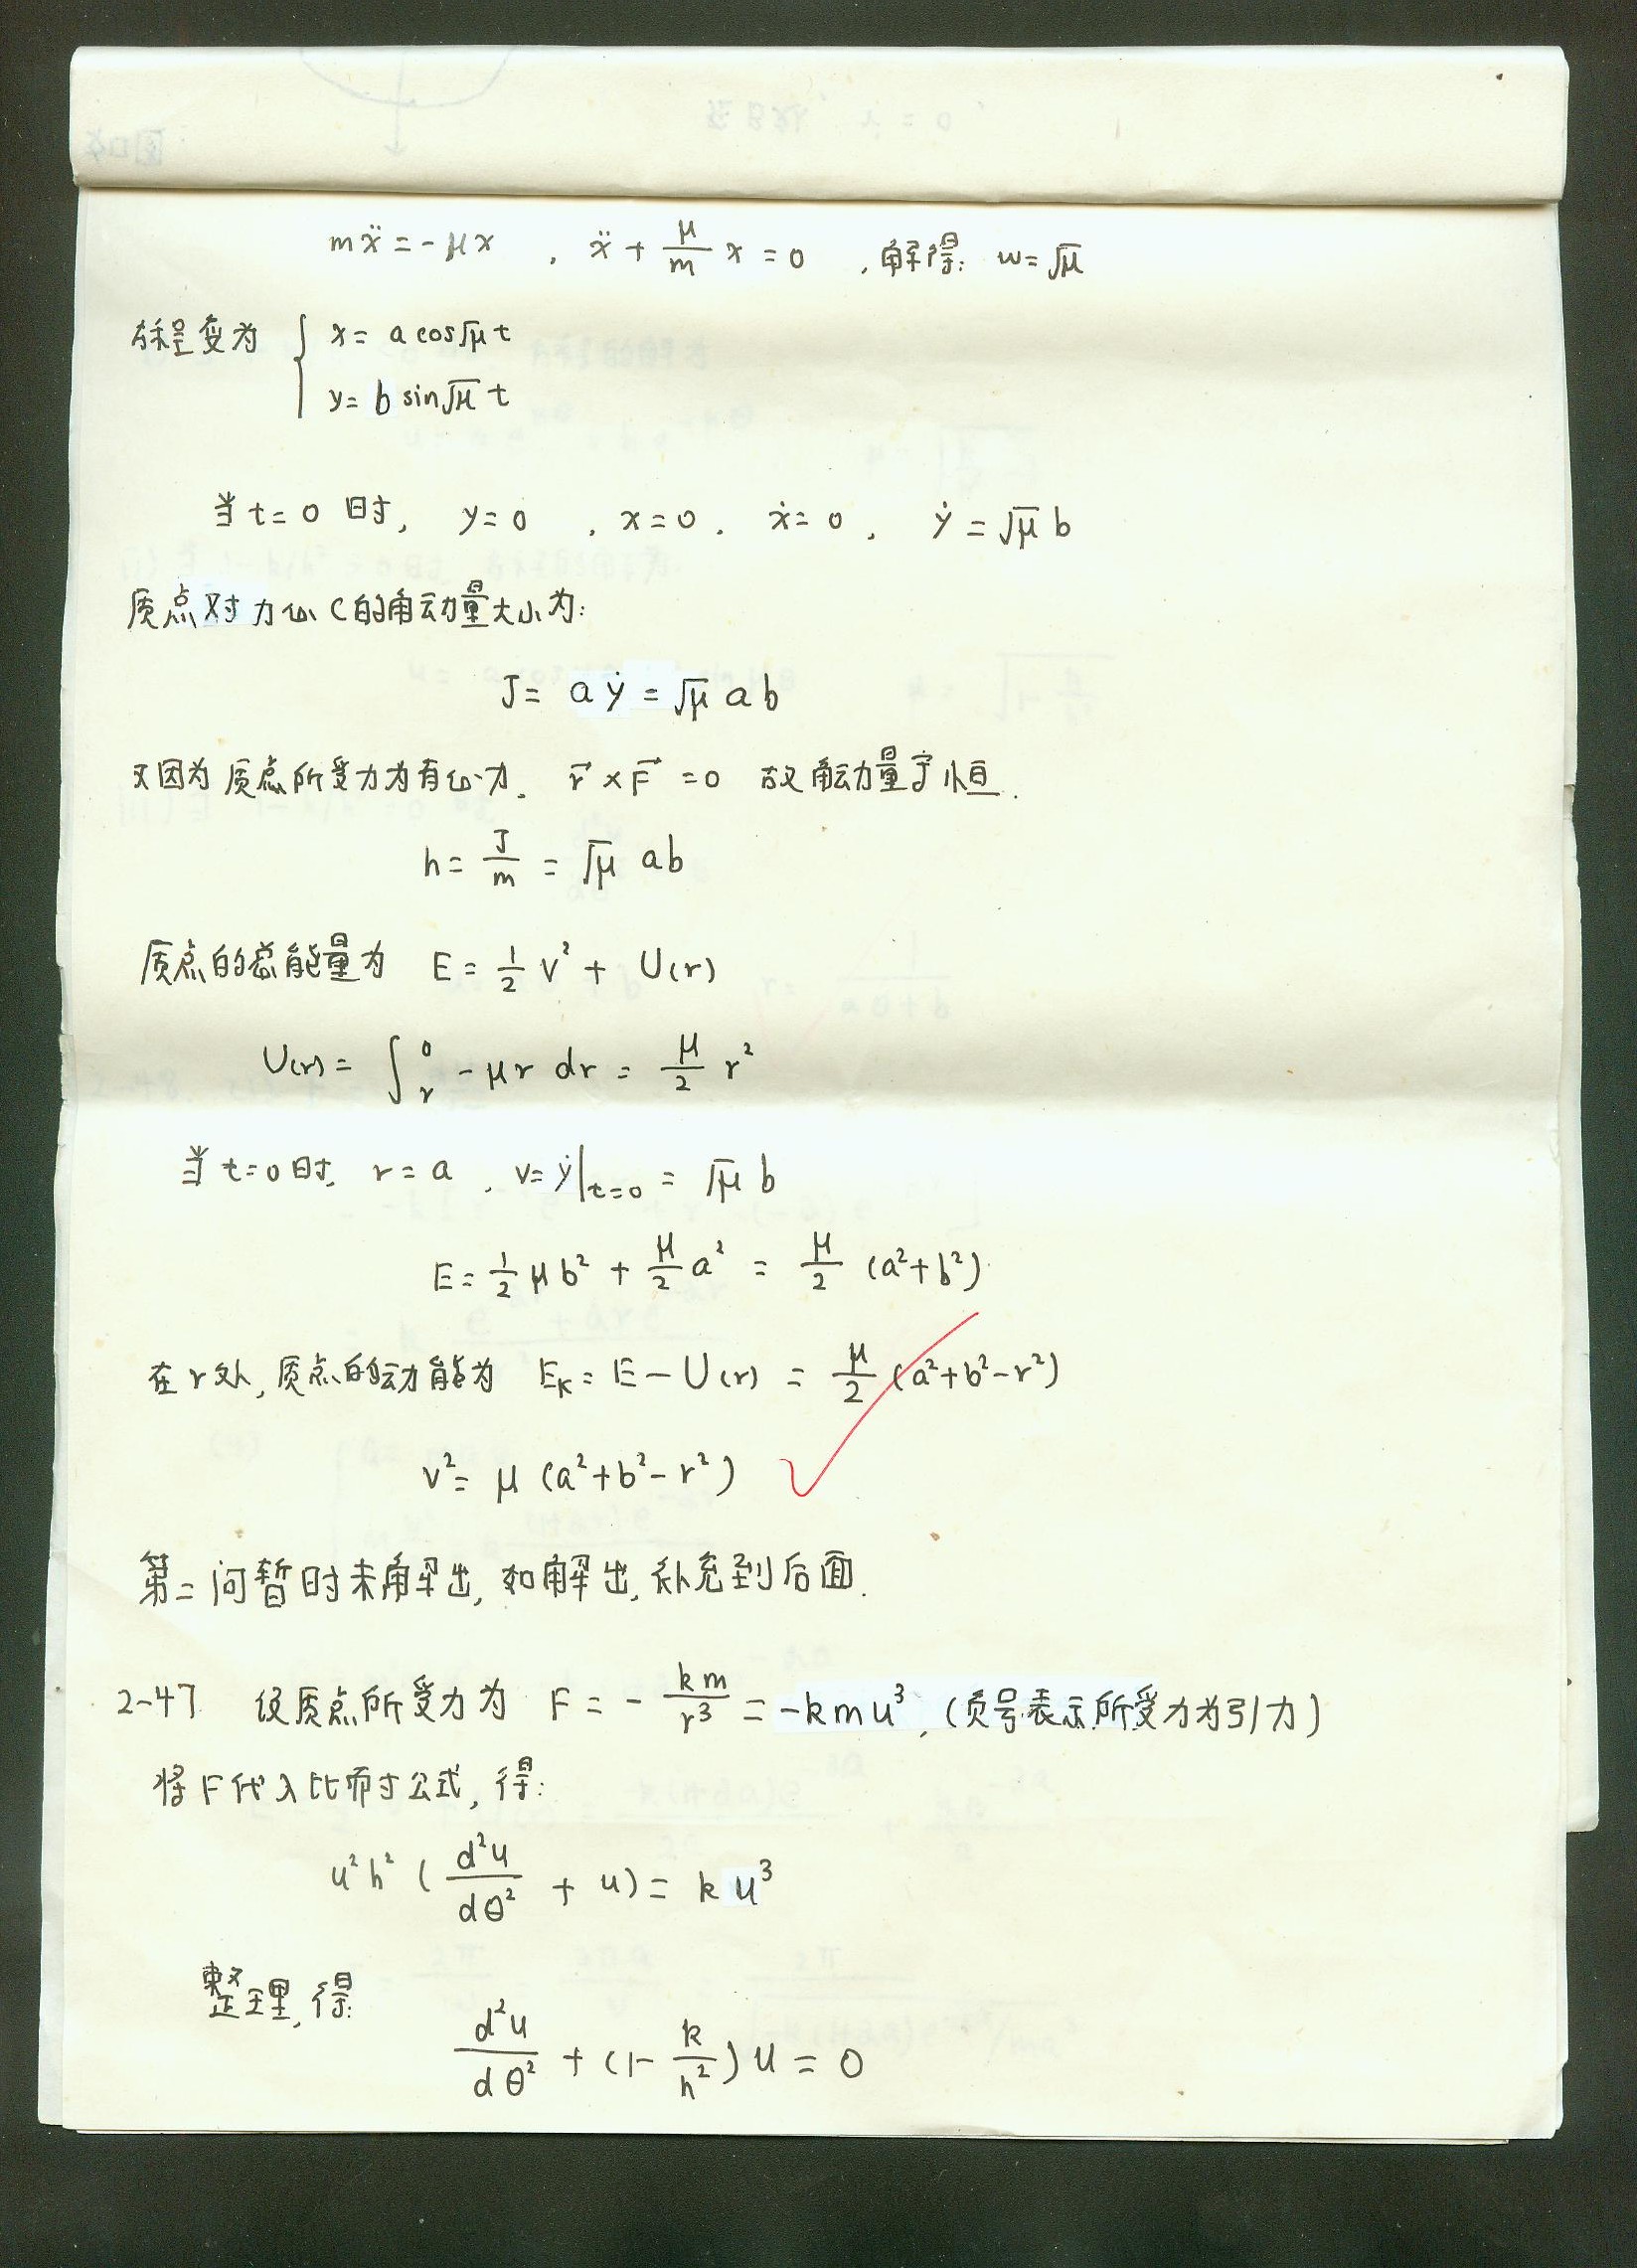 mẍ = -μx , ẍ + μ/m x = 0 , 解得: w = √μ
方程变为 { x = a cos√μ t
y = b sin√μ t
当 t = 0 时, y = 0 , x = 0 . ẋ = 0 , ẏ = √μ b
质点对力心C的角动量大小为:
J = aẏ = √μ ab
又因为质点所受力为有心力. r⃗ × F⃗ = 0 故角动量守恒.
h = J/m = √μ ab
质点的总能量为 E = 1/2 v² + U(r)
U(r) = ∫_r^0 -μr dr = μ/2 r²
当 t=0 时, r = a , v = ẏ|_{t=0} = √μ b
E = 1/2 μb² + μ/2 a² = μ/2 (a²+b²)
在r处, 质点的动能为 E_K = E - U(r) = μ/2 (a²+b²-r²)
v² = μ (a²+b²-r²)
第二问暂时未解出, 如解出, 补充到后面.
2-47 设质点所受力为 F = - km/r³ = -kmu³, (负号表示所受力为引力)
将F代入比耐寸公式, 得:
u²h² ( d²u/dθ² + u) = ku³
整理, 得:
d²u/dθ² + (1 - k/h²) u = 0